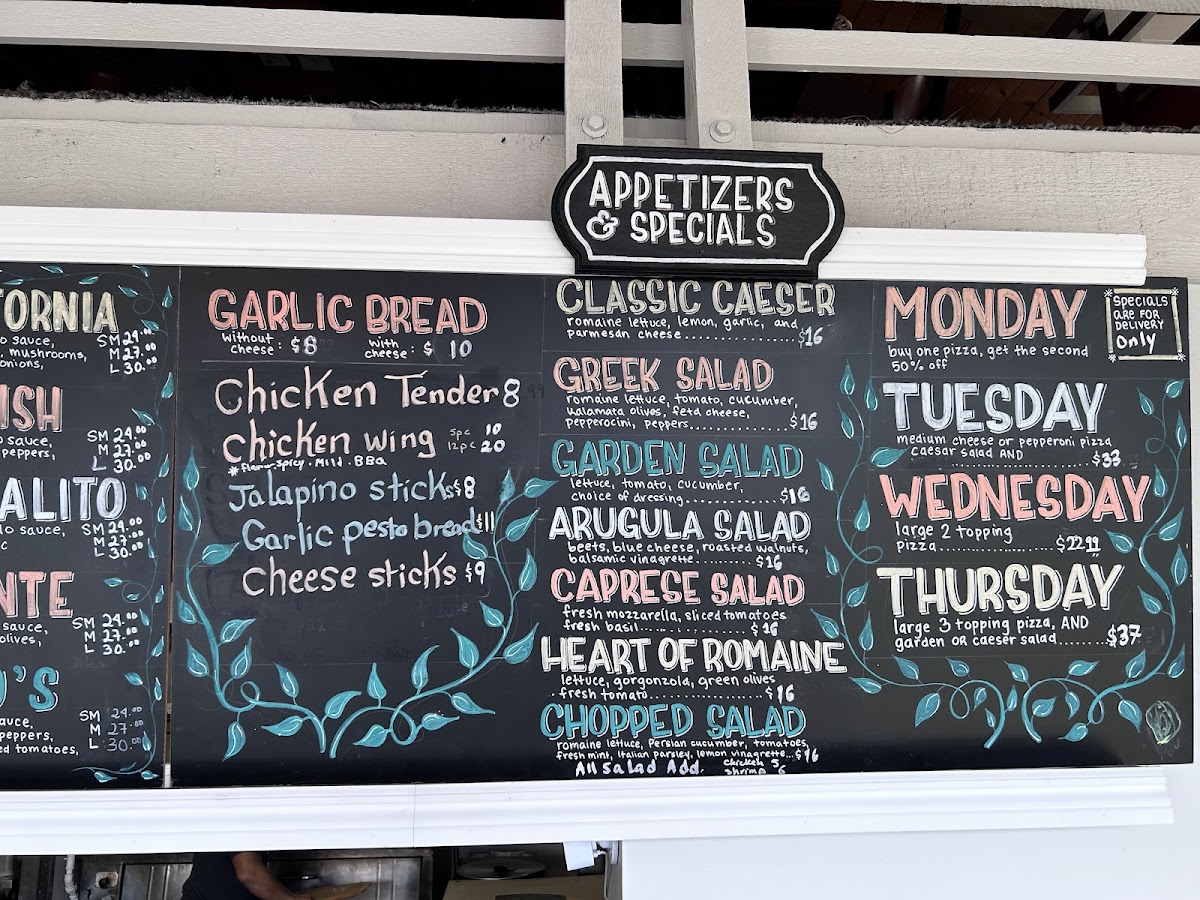 APPETIZERS
& SPECIALS
ORNIA
o sauce,
, mushrooms,
onions,
SM 24.00
M 27.00
L 30.00
ISH
o sauce,
peppers,
SM 24.00
M 27.00
L 30.00
ALITO
o sauce,
c
SM 24.00
M 27.00
L 30.00
NTE
sauce,
olives,
SM 24.00
M 27.00
L 30.00
'S
auce,
peppers,
ed tomatoes,
SM 24.00
M 27.00
L 30.00
GARLIC BREAD
without
cheese: $8
with
cheese: $ 10
Chicken Tender 8
chicken wing
5pc 10
12pc 20
Jalapino sticks $8
Garlic pesto bread $11
Cheese sticks $9
CLASSIC CAESER
romaine lettuce, lemon, garlic, and
parmesan cheese $16
GREEK SALAD
romaine lettuce, tomato, cucumber,
kalamata olives, feta cheese,
pepperocini, peppers $16
GARDEN SALAD
lettuce, tomato, cucumber,
choice of dressing $16
ARUGULA SALAD
beets, blue cheese, roasted walnuts,
balsamic vinagrette $16
CAPRESE SALAD
fresh mozzarella, sliced tomatoes
fresh basil $16
HEART OF ROMAINE
lettuce, gorgonzola, green olives
fresh tomato $16
CHOPPED SALAD
romaine lettuce, Persian cucumber, tomatoes,
fresh mint, Italian parsley, lemon vinagrette $16
All Salad Add.
chicken 5
shrimp 6
MONDAY
buy one pizza, get the second
50% off
SPECIALS
ARE FOR
DELIVERY
Only
TUESDAY
medium cheese or pepperoni pizza
caesar salad AND $33
WEDNESDAY
large 2 topping
pizza $22.99
THURSDAY
large 3 topping pizza, AND
garden OR caeser salad $37